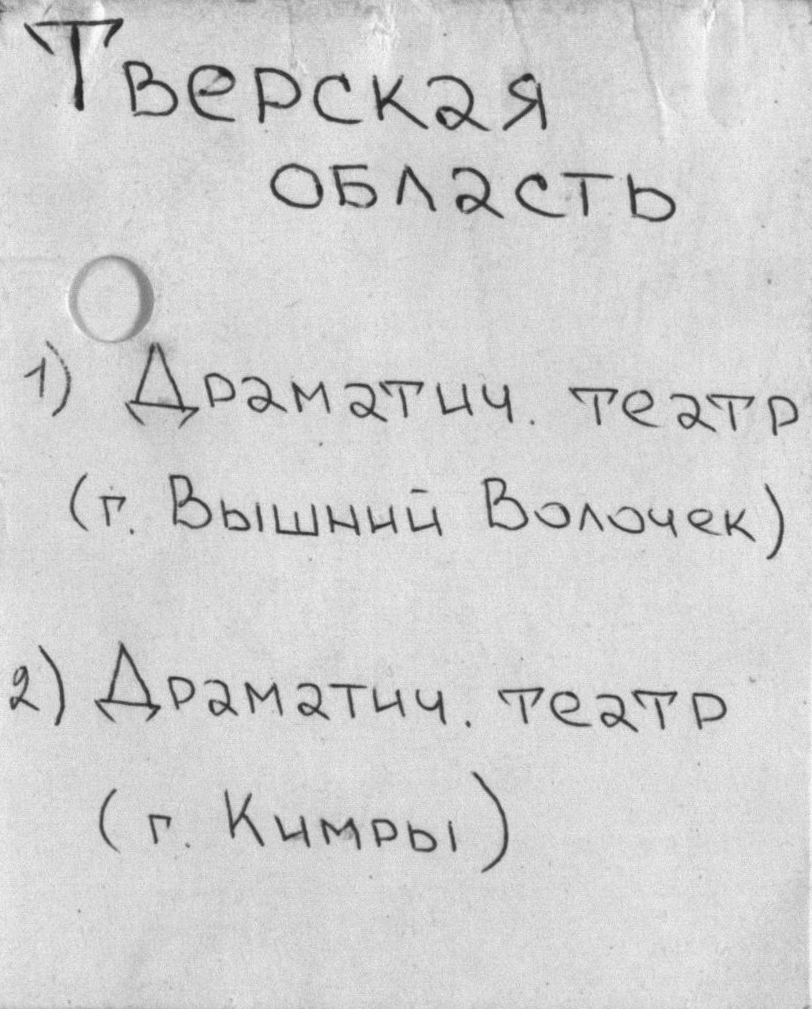 Тверская
область
1) Драматич. театр
(г. Вышний Волочек)
2) Драматич. театр
(г. Кимры)